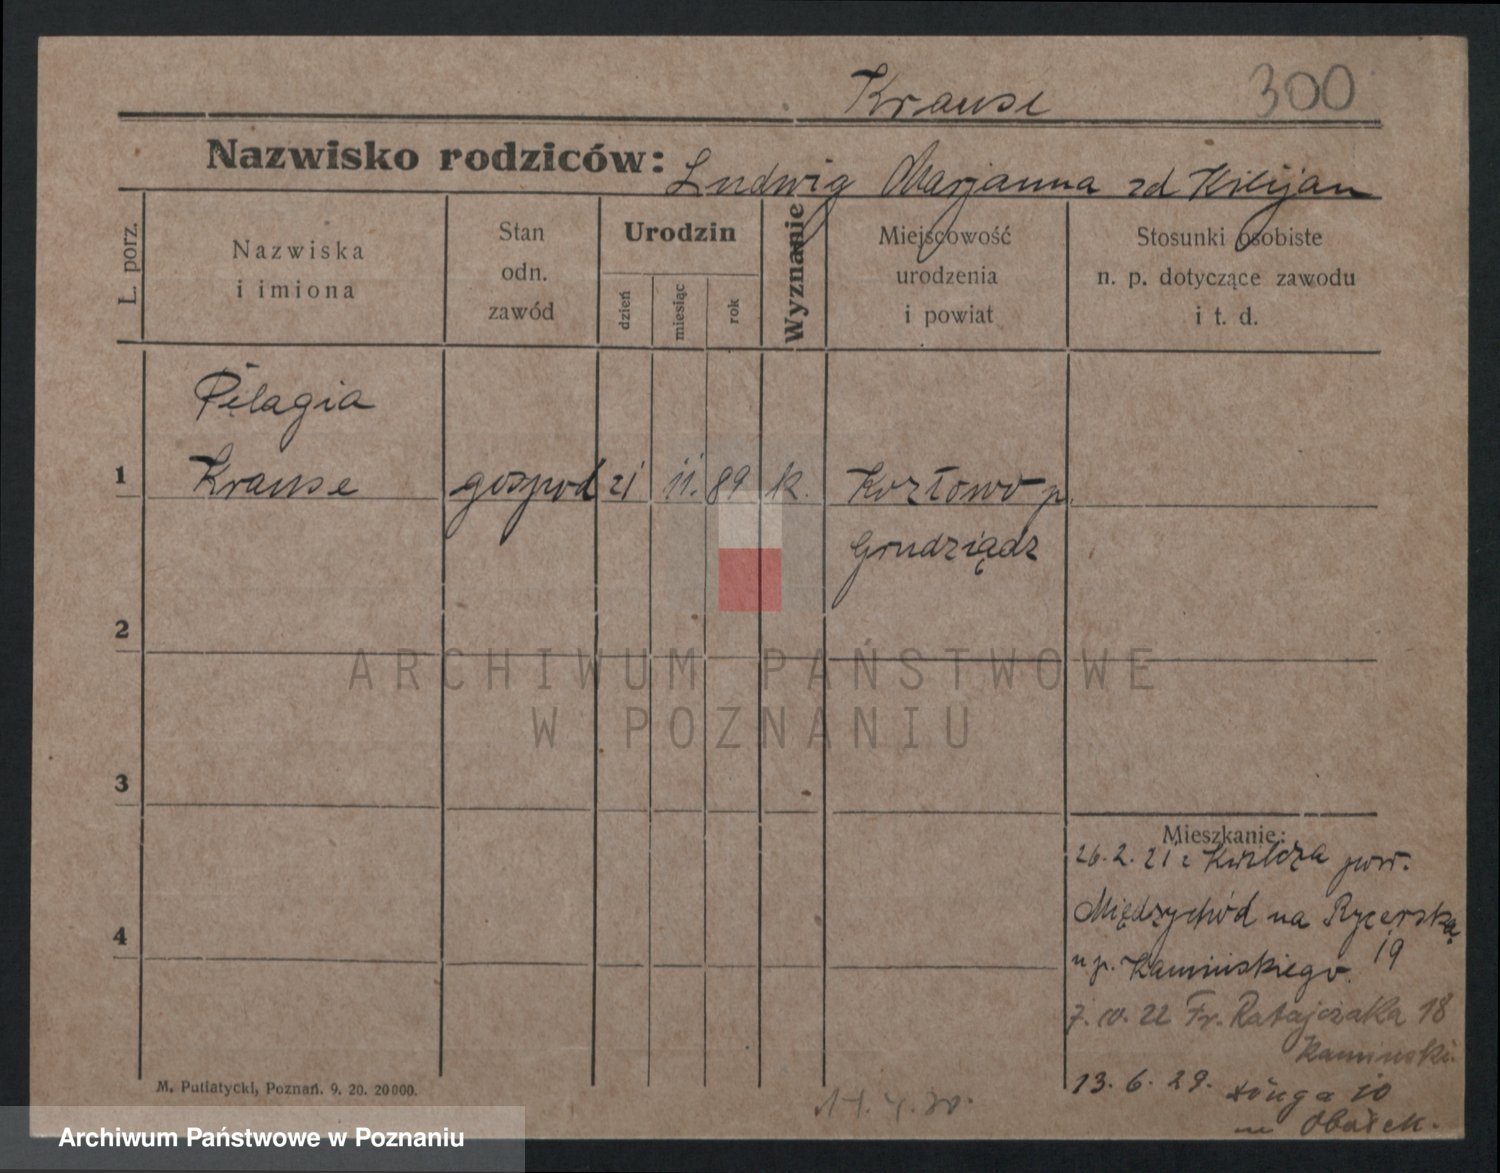 Krause 300
Nazwisko rodziców: Ludwig Marjanna zd Kilijan
L. porz.
Nazwiska
i imiona
Stan
odn.
zawód
Urodzin
dzień
miesiąc
rok
Wyznanie
Miejscowość
urodzenia
i powiat
Stosunki osobiste
n. p. dotyczące zawodu
i t. d.
Pelagia
1 Krause gospod 21 11. 89 k. Kozłowo p.
Grudziądz
2
ARCHIWUM PAŃSTWOWE
W POZNANIU
3
Mieszkanie:
26. 2. 21 z Kwilcza pow.
4 Międzychód na Rycerską
u p. Kamińskiego. 19
7. IV. 22 Fr. Ratajczaka 18
Kaminski
13. 6. 29. Długa 10
Obałek.
M. Putiatycki, Poznań. 9. 20. 20000.
Archiwum Państwowe w Poznaniu